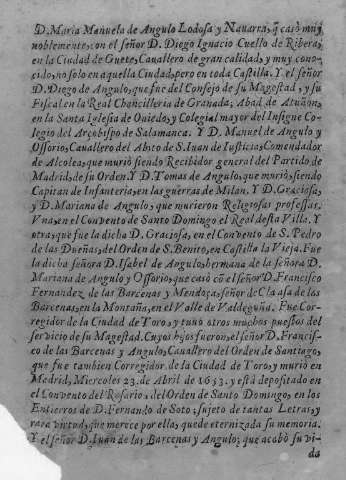 D. Maria Manuela de Angulo Lodosa y Nauarra, q̃ casò muy
noblemente, con el señor D. Diego Ignacio Cuello de Ribera,
en la Ciudad de Guete, Cauallero de gran calidad, y muy cono-
cido, no solo en aquella Ciudad, pero en toda Castilla. Y el señor
D. Diego de Angulo, que fue del Consejo de su Magestad, y su
Fiscal en la Real Chancilleria de Granada; Abad de Atuñon,
en la Santa Iglesia de Ouiedo, y Colegial mayor del Insigne Co-
legio del Arçobispo de Salamanca. Y D. Manuel de Angulo y
Ossorio, Cauallero del Abito de S. Iuan de Iusticia, Comendador
de Alcolea, que murió siendo Recibidor general del Partido de
Madrid, de su Orden. Y D. Tomas de Angulo, que murió, siendo
Capitan de Infanteria, en las guerras de Milan. Y D. Graciosa,
y D. Mariana de Angulo, que murieron Religiosas professas.
Vna, en el Conuento de Santo Domingo el Real desta Villa. Y
otra, que fue la dicha D. Graciosa, en el Conuento de S. Pedro
de las Dueñas, del Orden de S. Benito, en Castilla la Vieja. Fue
la dicha señora D. Isabel de Angulo, hermana de la señora D.
Mariana de Angulo y Ossorio, que casò cõ el señor D. Francisco
Fernandez de las Barcenas y Mendoça, señor de la Casa de los
Barcenas, en la Montaña, en el Valle de Valdeguña. Fue Cor-
regidor de la Ciudad de Toro, y tuuo otros muchos puestos del
seruicio de su Magestad. Cuyos hijos fueron, el señor D. Francis-
co de las Barcenas y Angulo, Cauallero del Orden de Santiago,
que fue tambien Corregidor de la Ciudad de Toro, y murió en
Madrid, Miercoles 23. de Abril de 1653. y està depositado en
el Conuento del Rosario, del Orden de Santo Domingo, en los
Entierros de D. Fernando de Soto; sujeto de tantas Letras, y
rara virtud, que merece por ella, quede eternizada su memoria.
Y el señor D. Iuan de las Barcenas y Angulo; que acabò su vi-
da